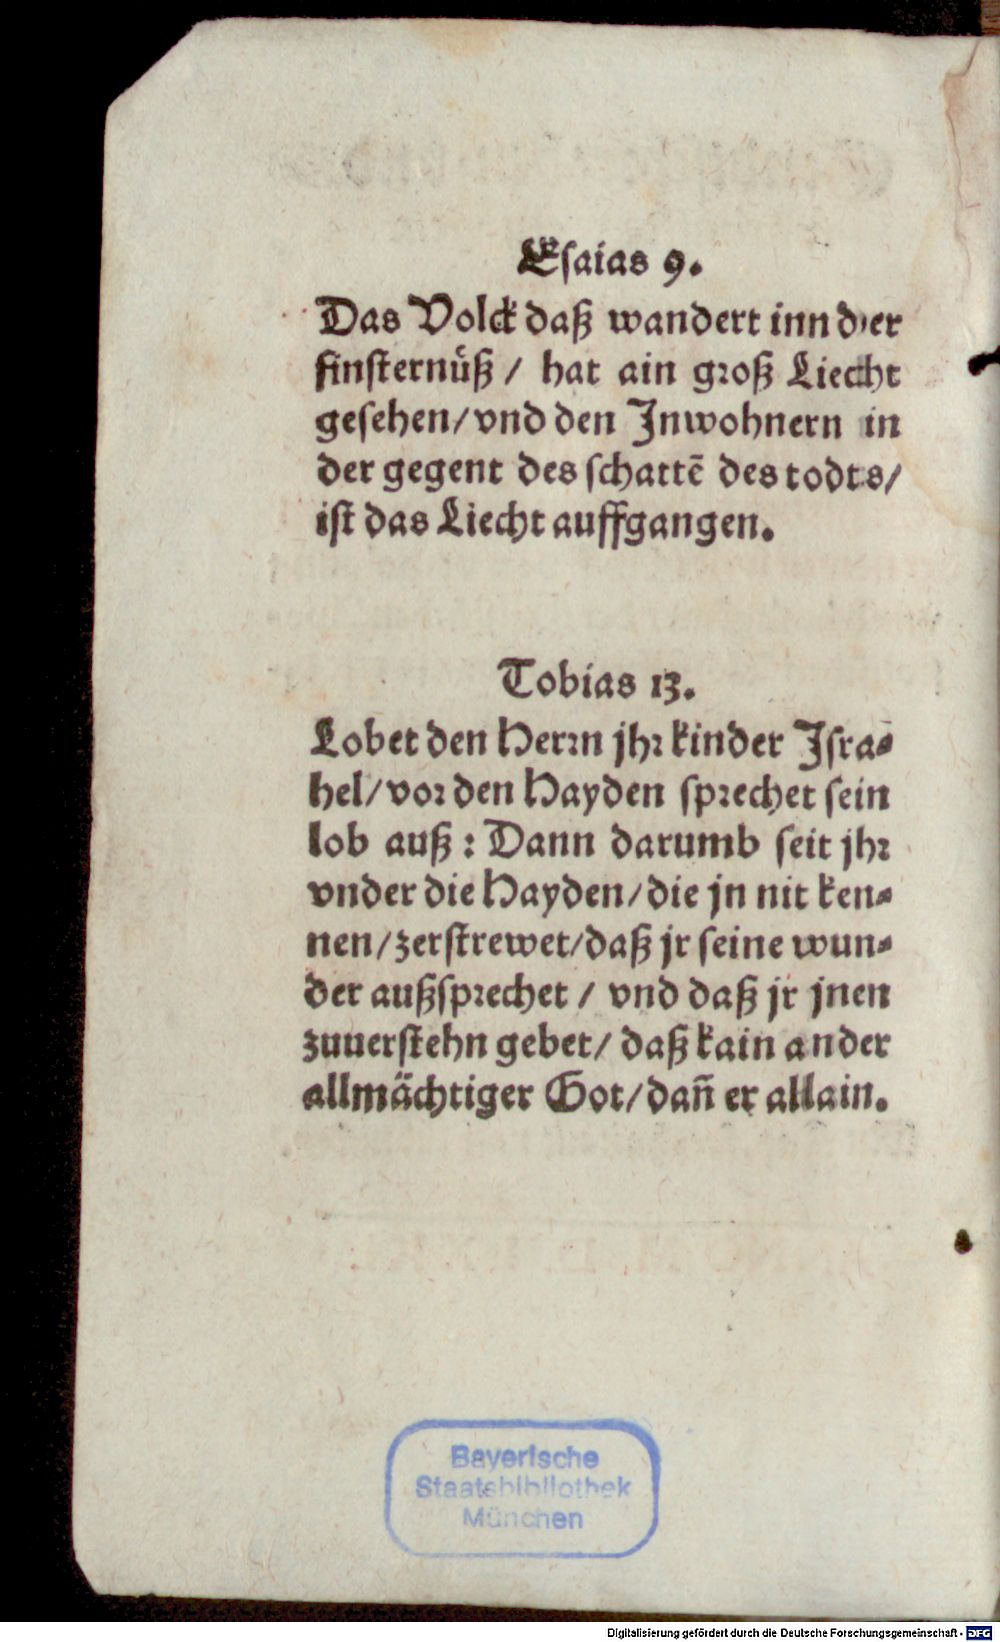 Esaias 9.
Das Volck daß wandert inn der
finsternuͤß / hat ain groß Liecht
gesehen/ vnd den Inwohnern in
der gegent des schattẽ des todts/
ist das Liecht auffgangen.
Tobias 13.
Lobet den Herrn jhr kinder Isra-
hel/ vor den Hayden sprechet sein
lob auß : Dann darumb seit jhr
vnder die Hayden/ die jn nit ken-
nen/ zerstrewet/ daß jr seine wun-
der außsprechet / vnd daß jr jnen
zuuerstehn gebet/ daß kain ander
allmächtiger Got/ dañ er allain.
Bayerische
Staatsbibliothek
München
Digitalisierung gefördert durch die Deutsche Forschungsgemeinschaft - DFG